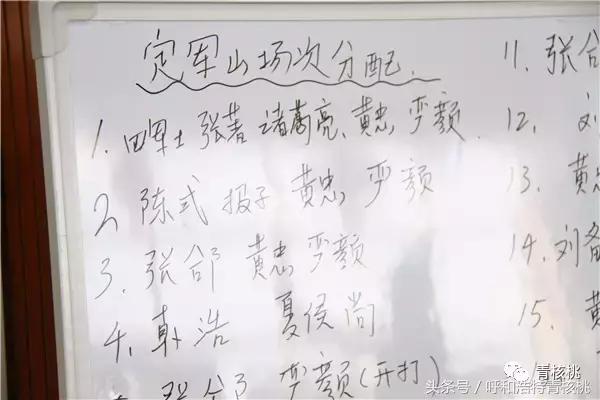 定军山场次分配.
1. 四军士 张著 诸葛亮、黄忠 严颜
2 陈式 报子 黄忠 严颜
3. 张郃 黄忠 严颜
4. 韩浩 夏侯尚
张郃 严颜(开打)
11. 张郃
12. 刘
13. 黄
14. 刘备
15. 黄
青核桃
头条号 / 呼和浩特青核桃